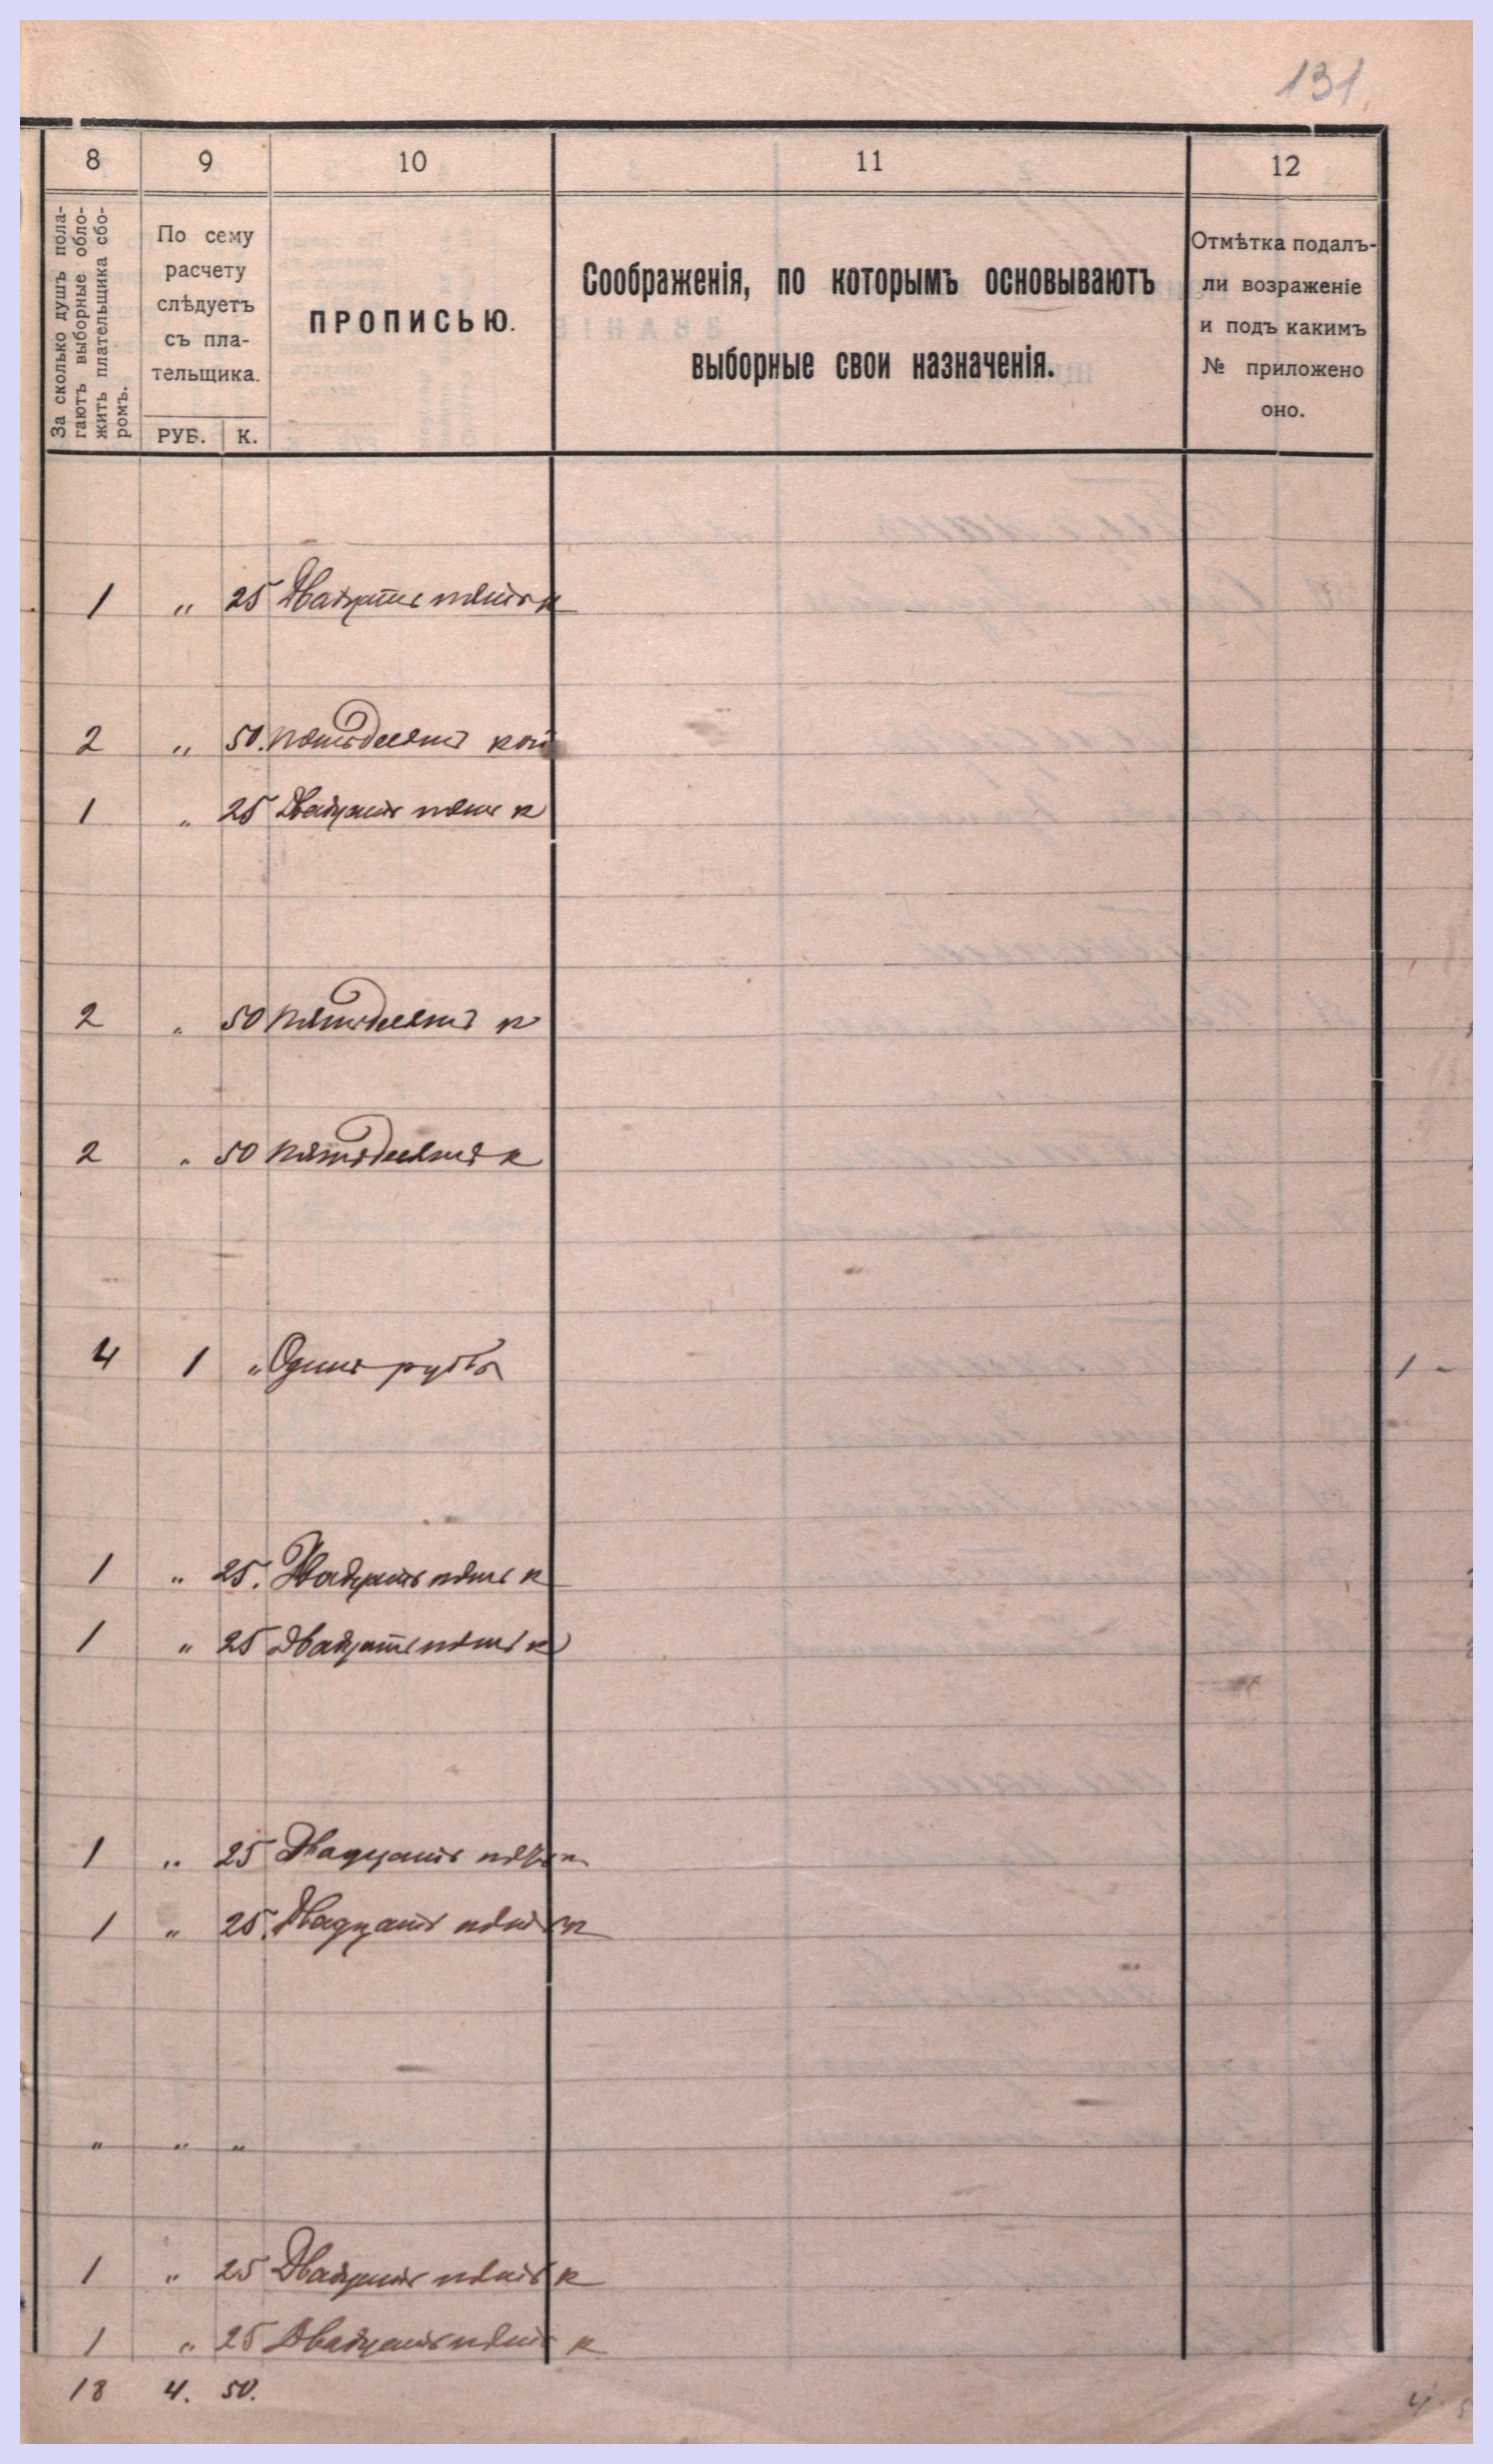 131
8 9 10 11 12
За сколько душъ пола-
гаютъ выборные обло-
жить плательщика сбо-
ромъ.
По сему
расчету
слѣдуетъ
съ пла-
тельщика.
РУБ. К.
ПРОПИСЬЮ.
Соображенія, по которымъ основываютъ
выборные свои назначенія.
Отмѣтка подалъ-
ли возраженіе
и подъ какимъ
№ приложено
оно.
1 „ 25 Двадцать пять к
2 „ 50. Пятьдесятъ коп
1 „ 25 Двадцать пять к
2 „ 50 Пятьдесятъ к
2 „ 50 Пятьдесятъ к
4 1 „ Одинъ рубль 1 -
1 „ 25. Двадцать пять к
1 „ 25 Двадцать пять к
1 „ 25 Двадцать пять к
1 „ 25. Двадцать пять к
„ „ „
1 „ 25 Двадцать пять к
1 „ 25 Двадцать пять к
18 4. 50.